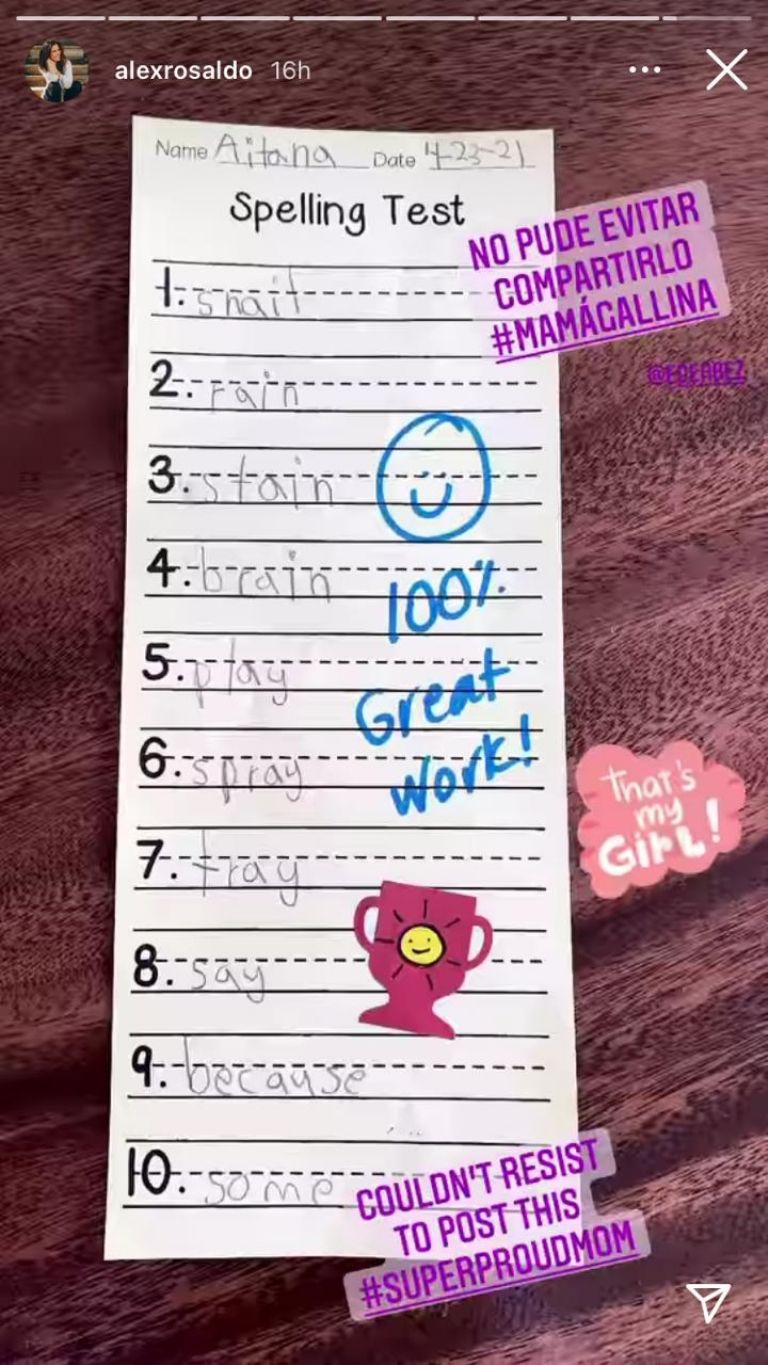 alexrosaldo 16h
Name Aitana Date 4-23-21
Spelling Test
NO PUDE EVITAR
COMPARTIRLO
#MAMÁGALLINA
1. snail
2. rain
3. stain
4. brain
100%
5. play
Great
6. spray
work!
That's
my
GIRL!
7. tray
8. say
9. because
10. some
COULDN'T RESIST
TO POST THIS
#SUPERPROUDMOM